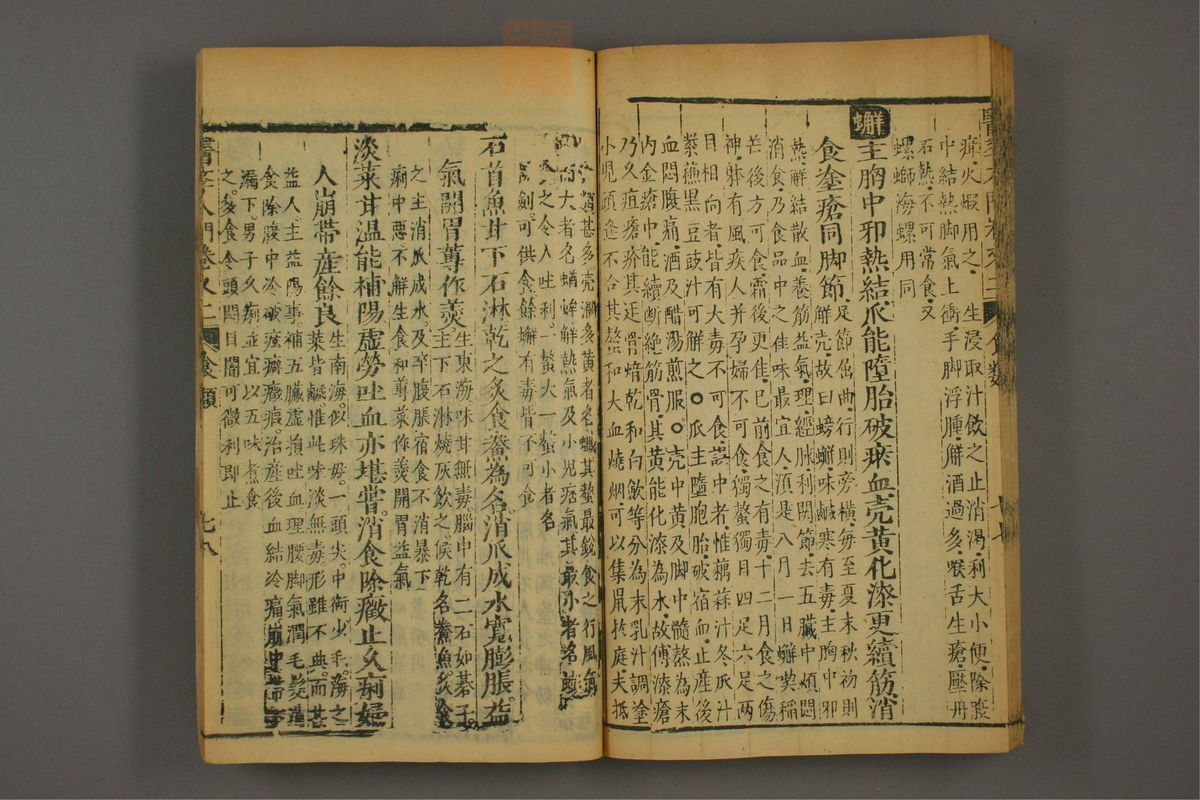 癖火嘏用之生浸取汁飲之止消渴利大小便除裹
中結熱脚氣上衝手脚浮腫解酒過多喉舌生瘡壓丹
石熱不可常食又
螺螄海螺用同
蠏主胸中邪熱結瓜能墮胎破瘀血壳黃化漆更續筋消
食塗瘡同脚節
足節屈曲行則旁橫每至夏末秋初則
觧壳故曰螃蠏味鹹寒有毒主胸中邪
熱觧結散血養筋益氣理經脉利関節去五臟中煩悶
消食乃食品中之佳味最宜人須是八月一日蠏喫稻
芒後方可食霜後更佳已前食之有毒十二月食之傷
神體有風疾人并孕婦不可食獨螯獨目四足六足兩
目相向者皆有大毒不可食誤中者惟藕蒜汁冬瓜汁
紫蘓黑豆豉汁可觧之○瓜主墮胞胎破宿血止産後
血悶腹痛酒及醋湯煎服○壳中黃及脚中髓熬為末
内金瘡中能續断絶筋骨其黃能化漆為水故傅漆瘡
乃久疽瘡疥其迋骨焙乾和白歛等分為末乳汁調塗
小児頭逢不合其螯和大血燒烟可以集鼠於庭夫抵
類甚多壳濶多黃者名蠘其螯最銳食之行風氣
大者名蝤蛑觧熱氣及小児痞氣其最小者名
食之令人吐利一螯大一螯小者名
劍可供食餘蠏有毒皆不可食
石首魚甘下石淋乾之炙食鯗為名消瓜成水寬膨脹益
氣開胃蓴作羹
生東海味甘無毒腦中有二石如碁子
主下石淋燒灰飲之候乾名鯗魚炙食
之主消瓜成水及卒腹脹宿食不消暴下
痢中惡不觧生食和蓴菜作羹開胃益氣
淡菜甘温能補陽虛勞吐血亦堪嘗消食除癥止久痢婦
人崩帶産餘良
生南海似珠母一頭尖中銜少毛海之
菜皆鹹惟此味淡無毒形雖不典而甚
益人主益陽事補五臟虛損吐血理腰脚氣潤毛髮
食除腹中冷破痃癖癥瘕治産後血結冷痛崩中帶
漏下男子久痢並宜以五味煮食
之多食令頭悶目闇可微利即止
醫學入門卷之二 食類 七八